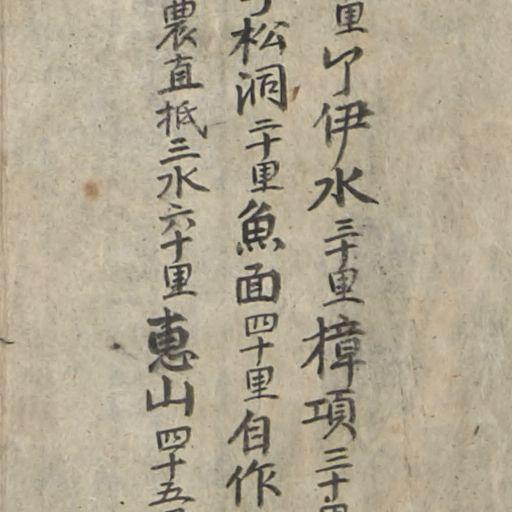 里卩伊水三十里樟項三十里
松洞二十里魚面四十里自作
農直抵三水六十里惠山四十五里